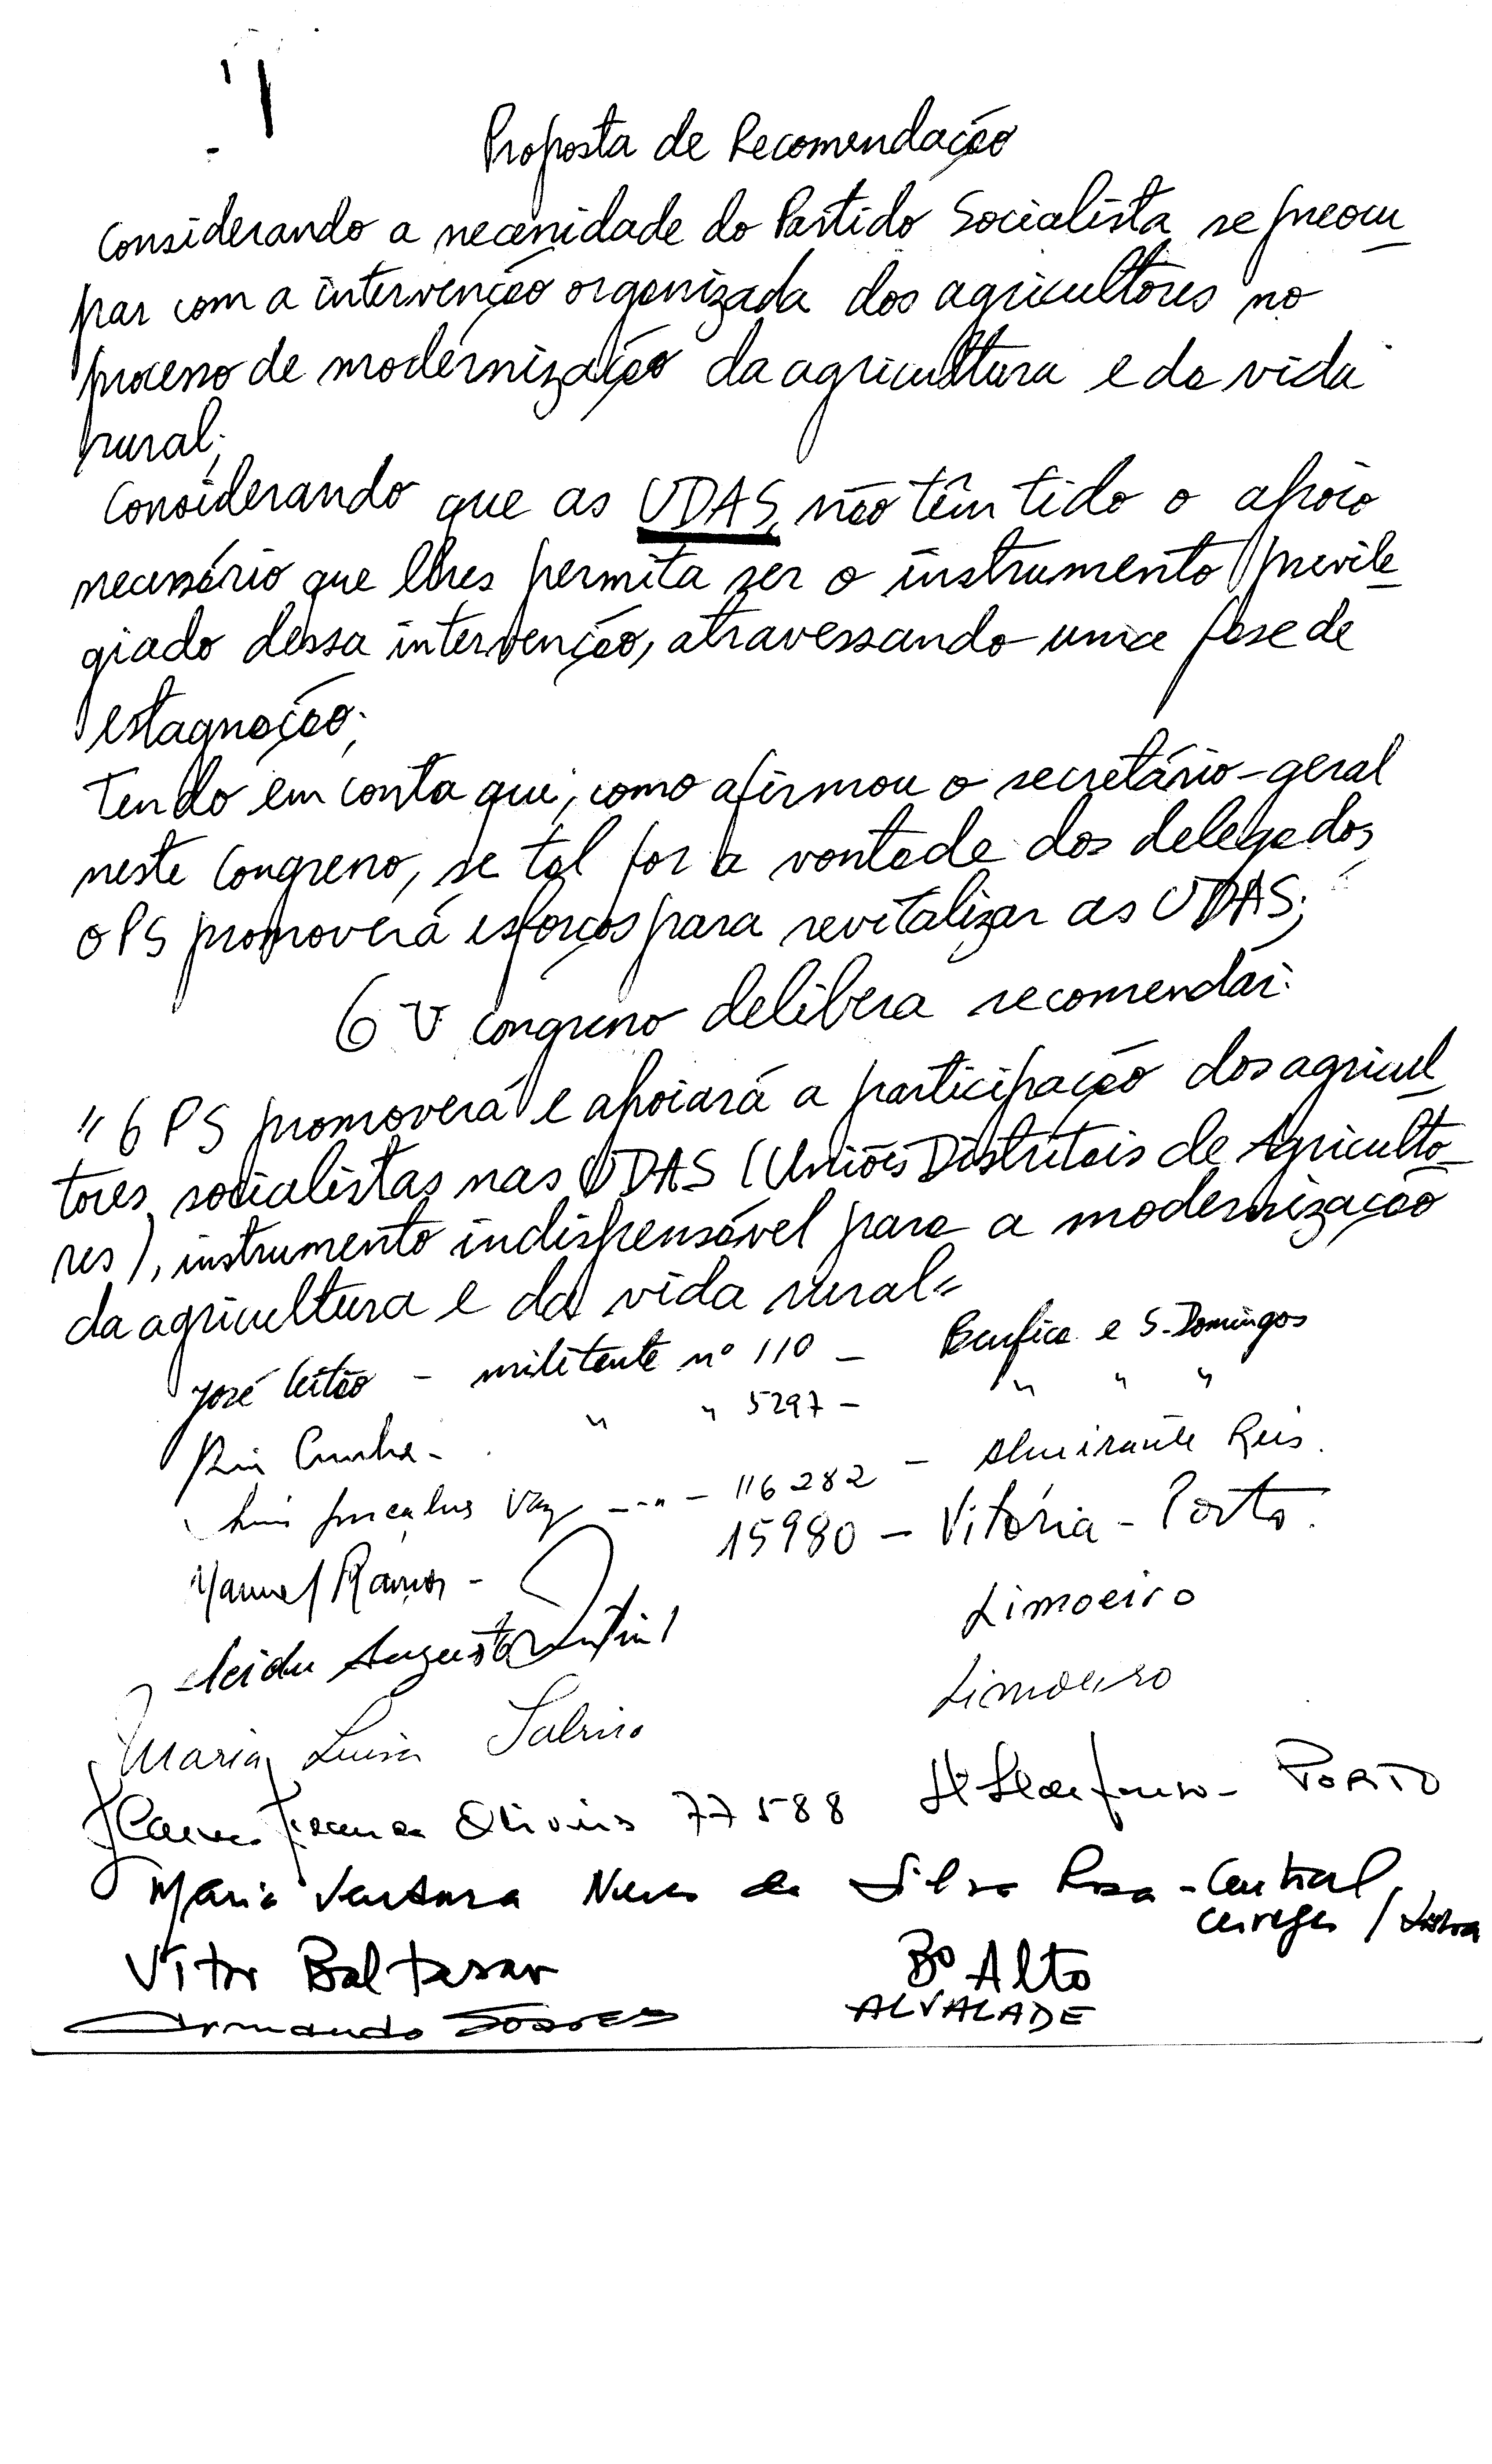 Proposta de Recomendação
Considerando a necessidade do Partido Socialista se preocu
par com a intervenção organizada dos agricultores no
processo de modernização da agricultura e da vida
rural;
Considerando que as UDAS, não têm tido o apoio
necessário que lhes permita ser o instrumento previle
giado dessa intervenção, atravessando uma fase de
estagnação;
Tendo em conta que, como afirmou o secretário-geral
neste Congresso, se tal for a vontade dos delegados,
o PS promoverá esforços para revitalizar as UDAS;
O V congresso delibera recomendar:
"O PS promoverá e apoiará a participação dos agricul
tores socialistas nas UDAS (Uniões Distritais de Agriculto
res), instrumento indispensável para a modernização
da agricultura e da vida rural"
José Leitão - militante nº 110 - Benfica e S. Domingos
Rui Cunha - " " 5297 - " " "
Luis Gonçalves Vaz - - " - 116282 - Almirante Reis.
Manuel Ramos - 15980 - Vitória - Porto.
Augusto Limoeiro
Maria Luisa Limoeiro
77588 Stº Ildefonso - PORTO
Maria Ventura Neves da Silva Rosa - Central
Cervejas / Lisboa
Vitor Baltasar Bº Alto
Armando Soares ALVALADE